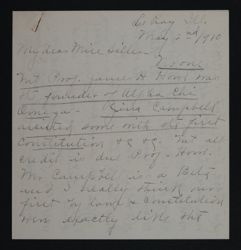 LeRoy Ill.
May 2nd 1910
My dear Miss
Noone
but Prof. James H. Howe was
the founder of Alpha Chi
Omega. Bina Campbell
assisted some with the first
Constitution &c &c. but all
credit is due Prof. Howe.
Mr Campbell is a Beta
and I really think our
first by laws & Constitution
were exactly like the